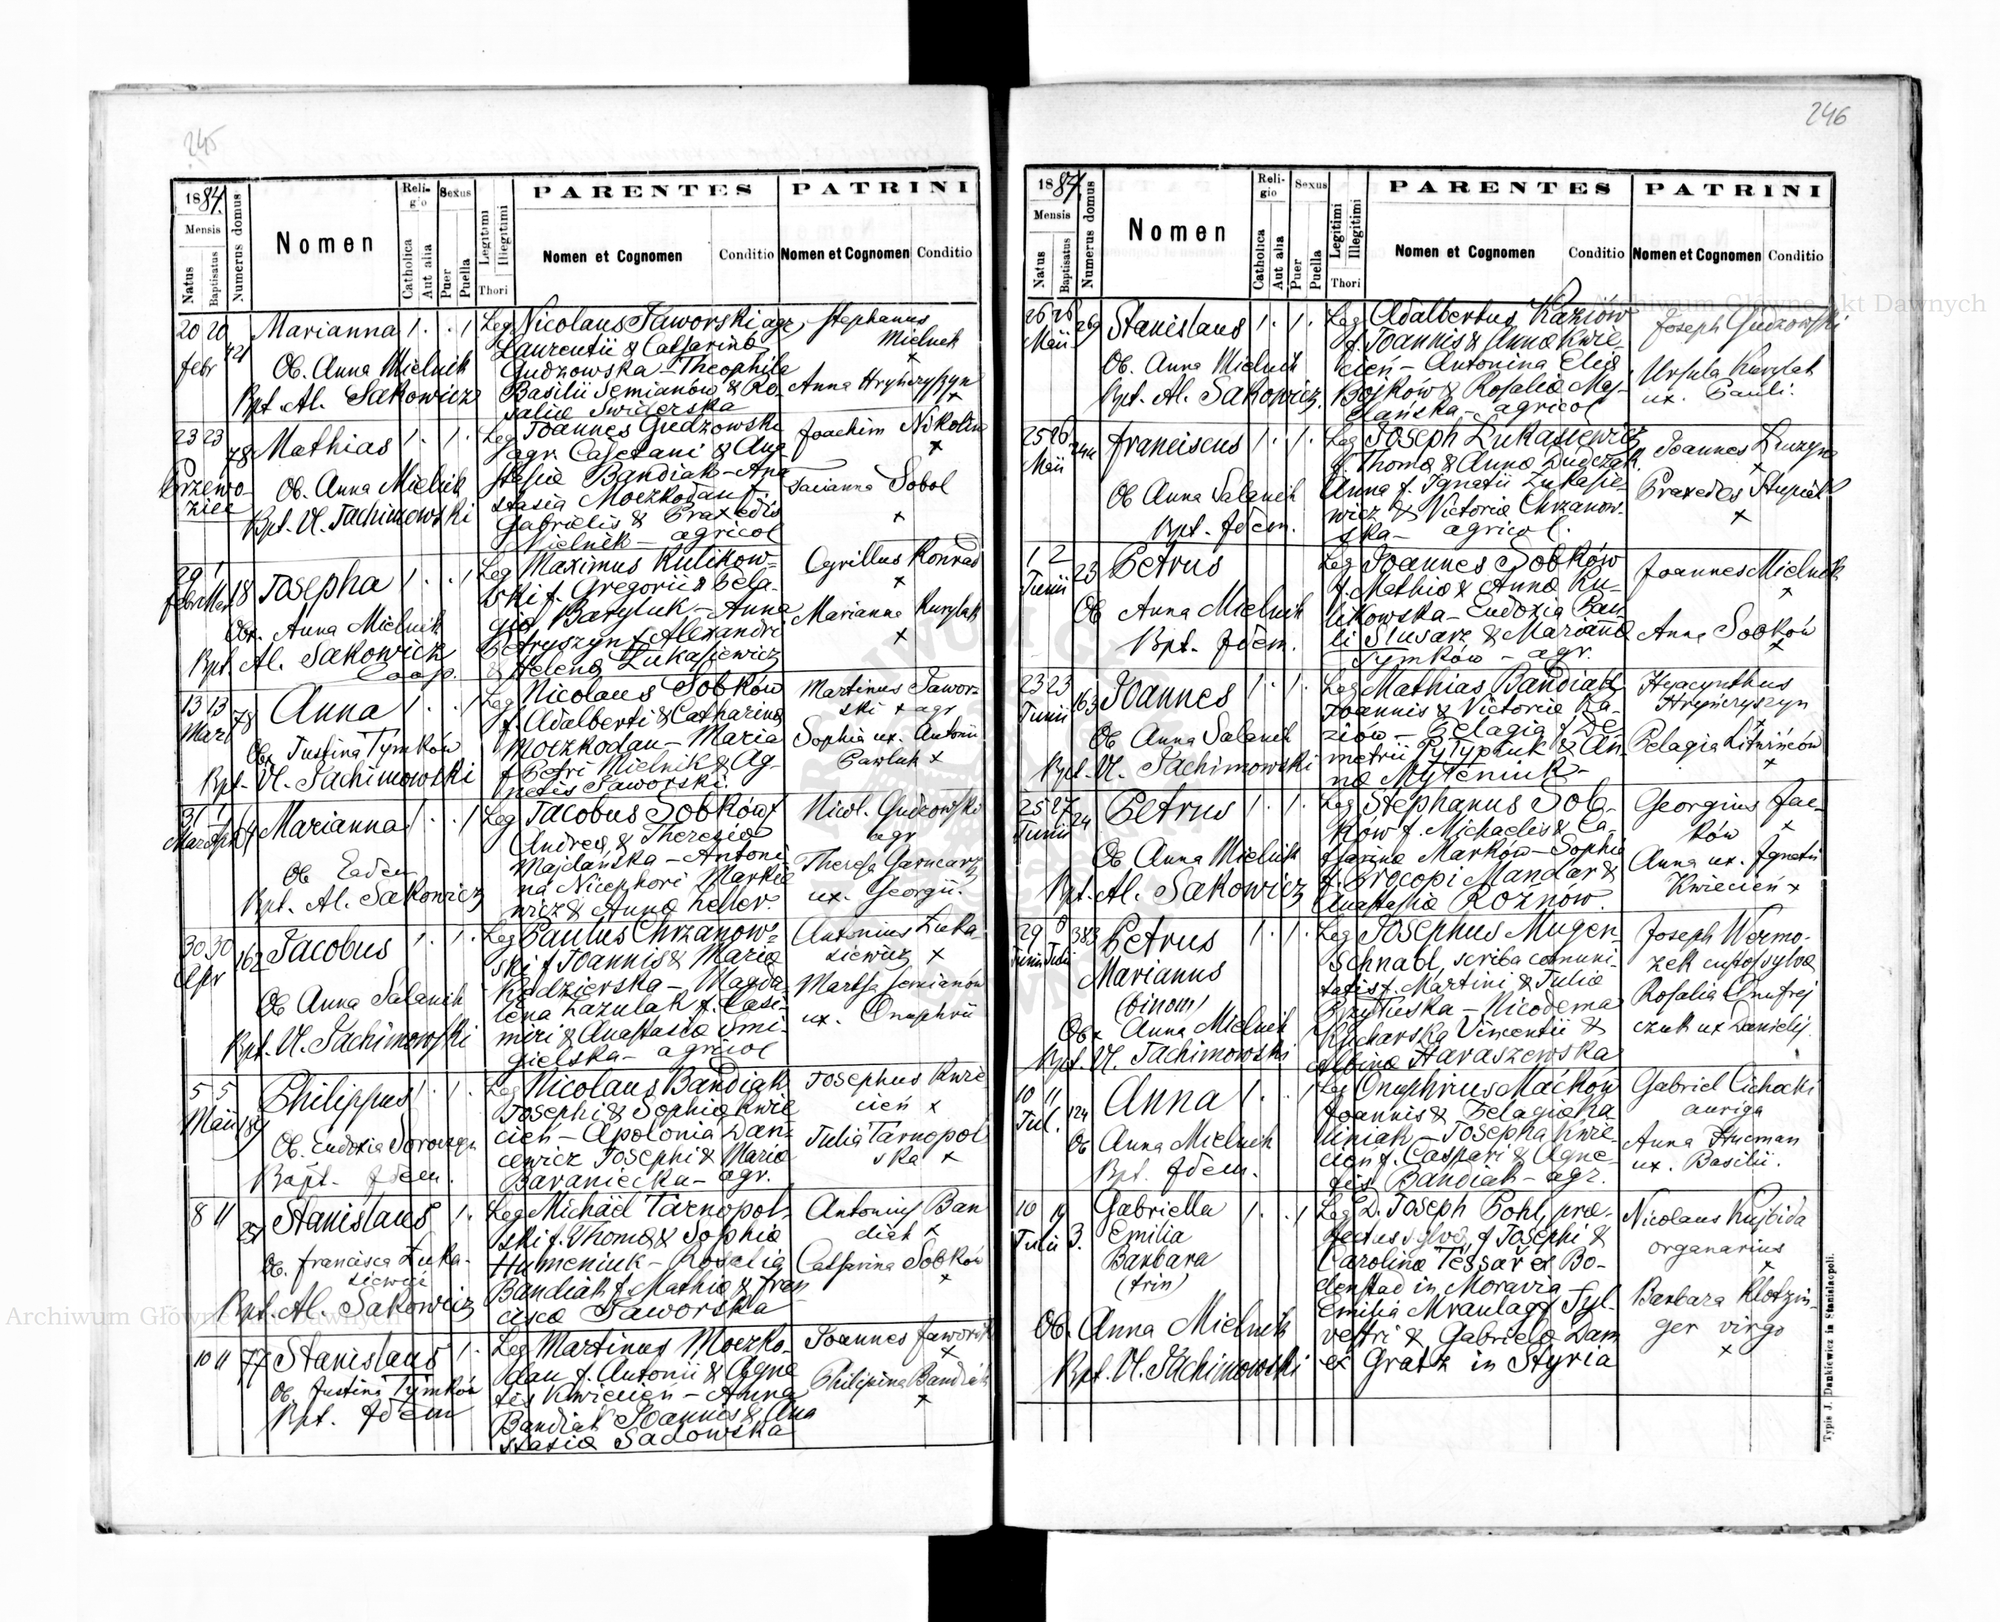 245
1884.
Mensis
Natus
Baptisatus
Numerus domus
Nomen
Religio
Catholica
Aut alia
Sexus
Puer
Puella
Legitimi
Illegitimi
Thori
PARENTES
Nomen et Cognomen
Conditio
PATRINI
Nomen et Cognomen
Conditio
20 20
febr
Marianna 1. . 1
Ob. Anna Mielnik
Bpt. Al. Sakowicz
Leg Nicolaus Jaworski agr
Laurentii & Catharina
Gudzowska Theophila
Basilii Semianów & Ro-
salia Swiderska
Stephanus
Mielnik
x
Anna Hryńczyszyn
x
23 23
78 Mathias 1. 1.
Ob. Anna Mielnik
Bpt. Vl. Jachimowski
Leg Joannes Gudzowski
agr. Cajetani & Ana
stasia Bandiak - Ana
stasia Moczkodan f.
Gabrielis & Praxedis
Mielnik - agricol
Joachim
x
Sobol
x
29 1
febr Mart 18 Josepha 1. . 1
Obx. Anna Mielnik
Bpt. Al. Sakowicz
Coop.
Leg Maximus Kulikow-
ski f. Gregorii & Pela-
gia Baryluk - Anna
Petryszyn f. Alexandri
& Helena Łukasiewicz
Cyrillus Konrad
x
Marianna Kurylak
x
13 13
Mart 78 Anna 1. . 1
Obx Justina Tymków
Bpt. Vl. Jachimowski
Leg Nicolaus Sobków
f. Adalberti & Catharina
Moczkodan - Maria
f. Petri Mielnik & Ag-
netis Jaworski.
Martinus Jawor-
ski x agr
Sophia ux. Antonii
Pawluk x
31 1
Marianna 1. . 1
Ob Eadem
Bpt. Al. Sakowicz
Leg Jacobus Sobków f
Andrea & Theresia
Majdańska - Antoni
na Nicephori Markie
wicz & Anna Zeller.
Nicol. Gudzowski
agr
Theresa Garncarz
ux. Georgii.
30 30
Apr 162 Jacobus 1. 1.
Ob Anna Salanik
Bpt. Vl. Jachimowski
Leg Paulus Chrzanow-
ski f Joannis & Maria
Kędzierska - Magda
lena Łazulak f. Casi-
miri & Anastasia Smi-
gielska - agricol
Antonius Łuka-
siewicz x
Martha Semianów
ux. Onuphrii
5 5
Maii Philippus 1. 1.
Ob. Eudoxia
Bapt. Idem.
Leg Nicolaus Bandiak
Josephi & Sophia Kwie
cień - Apolonia Dani
lewicz Josephi & Maria
Baraniecka - agr.
Josephus Kwie
cień x
Julia Tarnopol
ska x
8 11
Stanislaus 1.
Ob. Francisca Łuka-
siewicz
Bpt. Al. Sakowicz
Leg Michael Tarnopol-
ski f. Thoma & Sophia
Humeniuk - Rosalia
Bandiak f Mathia & Fran
cisca Jaworska
Antonius Ban
diak x
Catharina Sobków
x
10 11 77 Stanislaus 1.
Ob. Justina Tymków
Bpt. Idem
Leg Martinus Moczko-
dan f. Antonii & Agne
tis Kwiecień - Anna
Bandiak Joannis & Ana
stasia Sadowska
Joannes Jaworski
x
Philippina Bandiak
x
246
1884.
Mensis
Natus
Baptisatus
Numerus domus
Nomen
Religio
Catholica
Aut alia
Sexus
Puer
Puella
Legitimi
Illegitimi
Thori
PARENTES
Nomen et Cognomen
Conditio
PATRINI
Nomen et Cognomen
Conditio
26 26
Maii Stanislaus 1. 1.
Ob. Anna Mielnik
Bpt. Al. Sakowicz.
Leg Adalbertus Kaziów
f. Joannis & Anna Kwie
cień - Antonina Elia
Bojków & Rosalia Maj-
dańska - agricol
Joseph Gudzowski
Ursula Kurylak
ux. Pauli.
25 26
Maii Franciscus 1. 1.
Ob Anna Salanik
Bpt. Idem.
Leg Joseph Łukasiewicz
f. Thoma & Anna Dudczak.
Anna f. Ignatii Łukasie-
wicz & Victoria Chrzanow-
ska - agricol.
Joannes
x
Praxedes
x
1 2
Junii 23 Petrus
Ob Anna Mielnik
Bpt. Idem.
Leg Joannes Sobków
f. Mathia & Anna Ku-
likowska - Eudoxia Pau
li Slusarz & Marianna
Tymków - agr.
Joannes Mielnik
x
Anna Sobków
x
23 23
Junii 163 Joannes 1. 1.
Ob Anna Salanik
Bpt. Vl. Jachimowski
Leg Mathias Bandiak
Joannis & Victoria Ka-
ziów - Pelagia f De-
metrii Pytypiuk & An
na Myteniuk -
Hyacynthus
Hryńczyszyn
Pelagia Litwinów
x
25 27
Junii 24 Petrus 1. 1.
Ob Anna Mielnik
Bpt. Al. Sakowicz
Leg Stephanus Sob-
ków f. Michaelis & Ca-
tharina Marków - Sophia
f. Procopi Mandar &
Anastasia Rożnów.
Georgius Jac-
ków x
Anna ux. Ignatii
Kwiecień x
29 8
Junii Julii 383 Petrus 1. 1.
Marianus
(binom)
Obx Anna Mielnik
Bpt. Vl. Jachimowski
Leg Josephus Mugen-
schnabl, scriba comuni-
tatis f. Martini & Julia
Brzytuska - Nicodema
Kucharska Vincentii &
Albina Haraszewska
Joseph Wermo-
zek custos sylva
Rosalia Onufrej
czuk ux Danielis.
10 11
Jul. 124 Anna 1. . 1
Ob Anna Mielnik
Bpt. Idem.
Leg Onuphrius Maćków
Joannis & Pelagia Ka
liniak - Josepha Kwie-
cień f. Caspari & Agne-
tis Bandiak - agr.
Gabriel Cichocki
auriga
Anna Human
ux. Basilii.
10 19
Julii 3. Gabriella 1. . 1
Emilia
Barbara
(trin)
Ob. Anna Mielnik
Bpt. Vl. Jachimowski
Leg D. Joseph Pohl, prae-
fectus sylva, f Josephi &
Carolina Tessař ex Bo-
denstad in Moravia -
Emilia Mraulag f Syl-
vestri & Gabriela Dam
ex Gratz in Styria
Nicolaus Kujbida
organarius
x
Barbara Klotzin-
ger virgo
x
Typis J. Dankiewicz in Stanislaopoli.
Archiwum Główne Akt Dawnych
Archiwum Główne Akt Dawnych